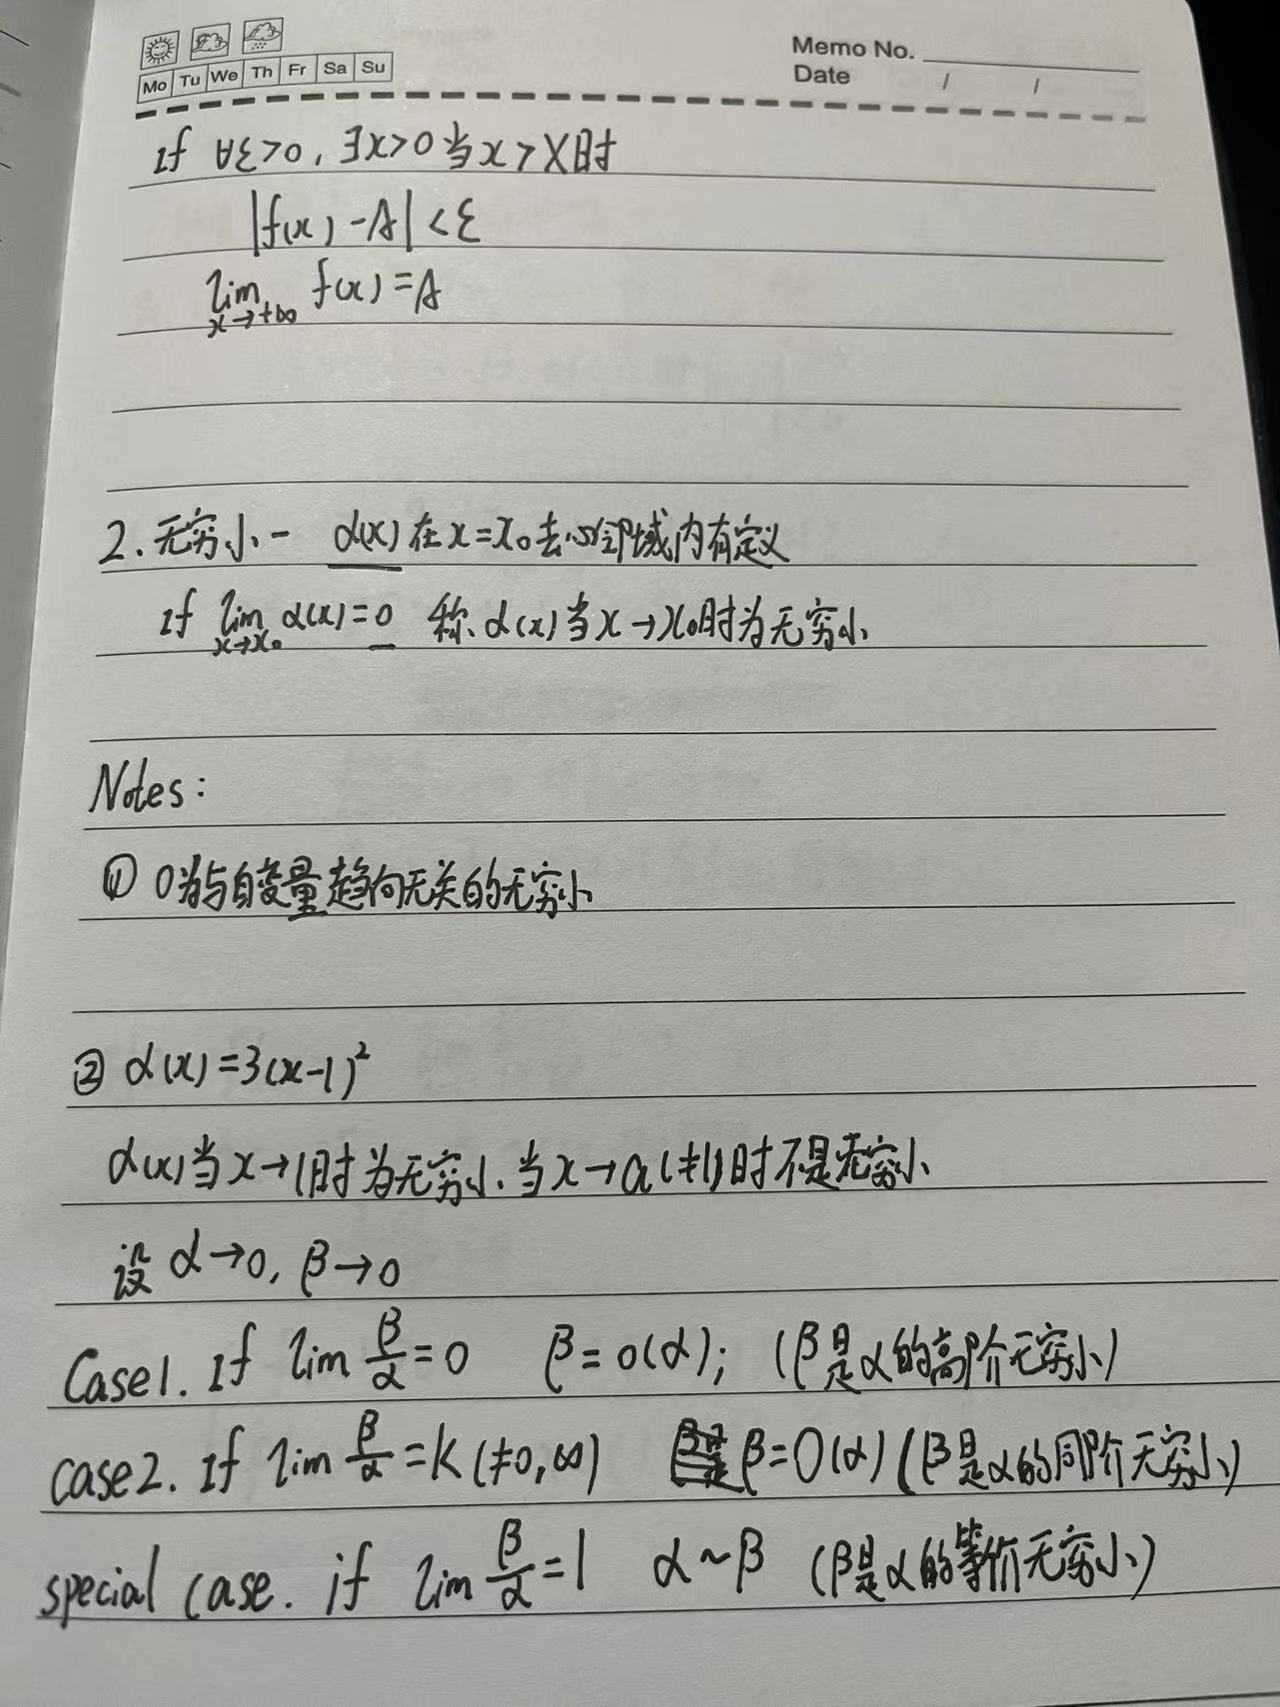 Mo Tu We Th Fr Sa Su
Memo No.
Date / /
If ∀ε>0, ∃x>0当x>X时
|f(x)-A|<ε
lim x→+∞ f(x)=A
2.无穷小- α(x)在x=x₀去心邻域内有定义
If lim x→x₀ α(x)=0 称α(x)当x→x₀时为无穷小
Notes:
① 0为与自变量趋向无关的无穷小
② α(x)=3(x-1)²
α(x)当x→1时为无穷小,当x→a(≠1)时不是无穷小
设α→0, β→0
Case1. If lim β/α=0 β=o(α); (β是α的高阶无穷小)
case2. If lim β/α=k(≠0,∞) β=O(α) (β是α的同阶无穷小)
special case. if lim β/α=1 α~β (β是α的等价无穷小)